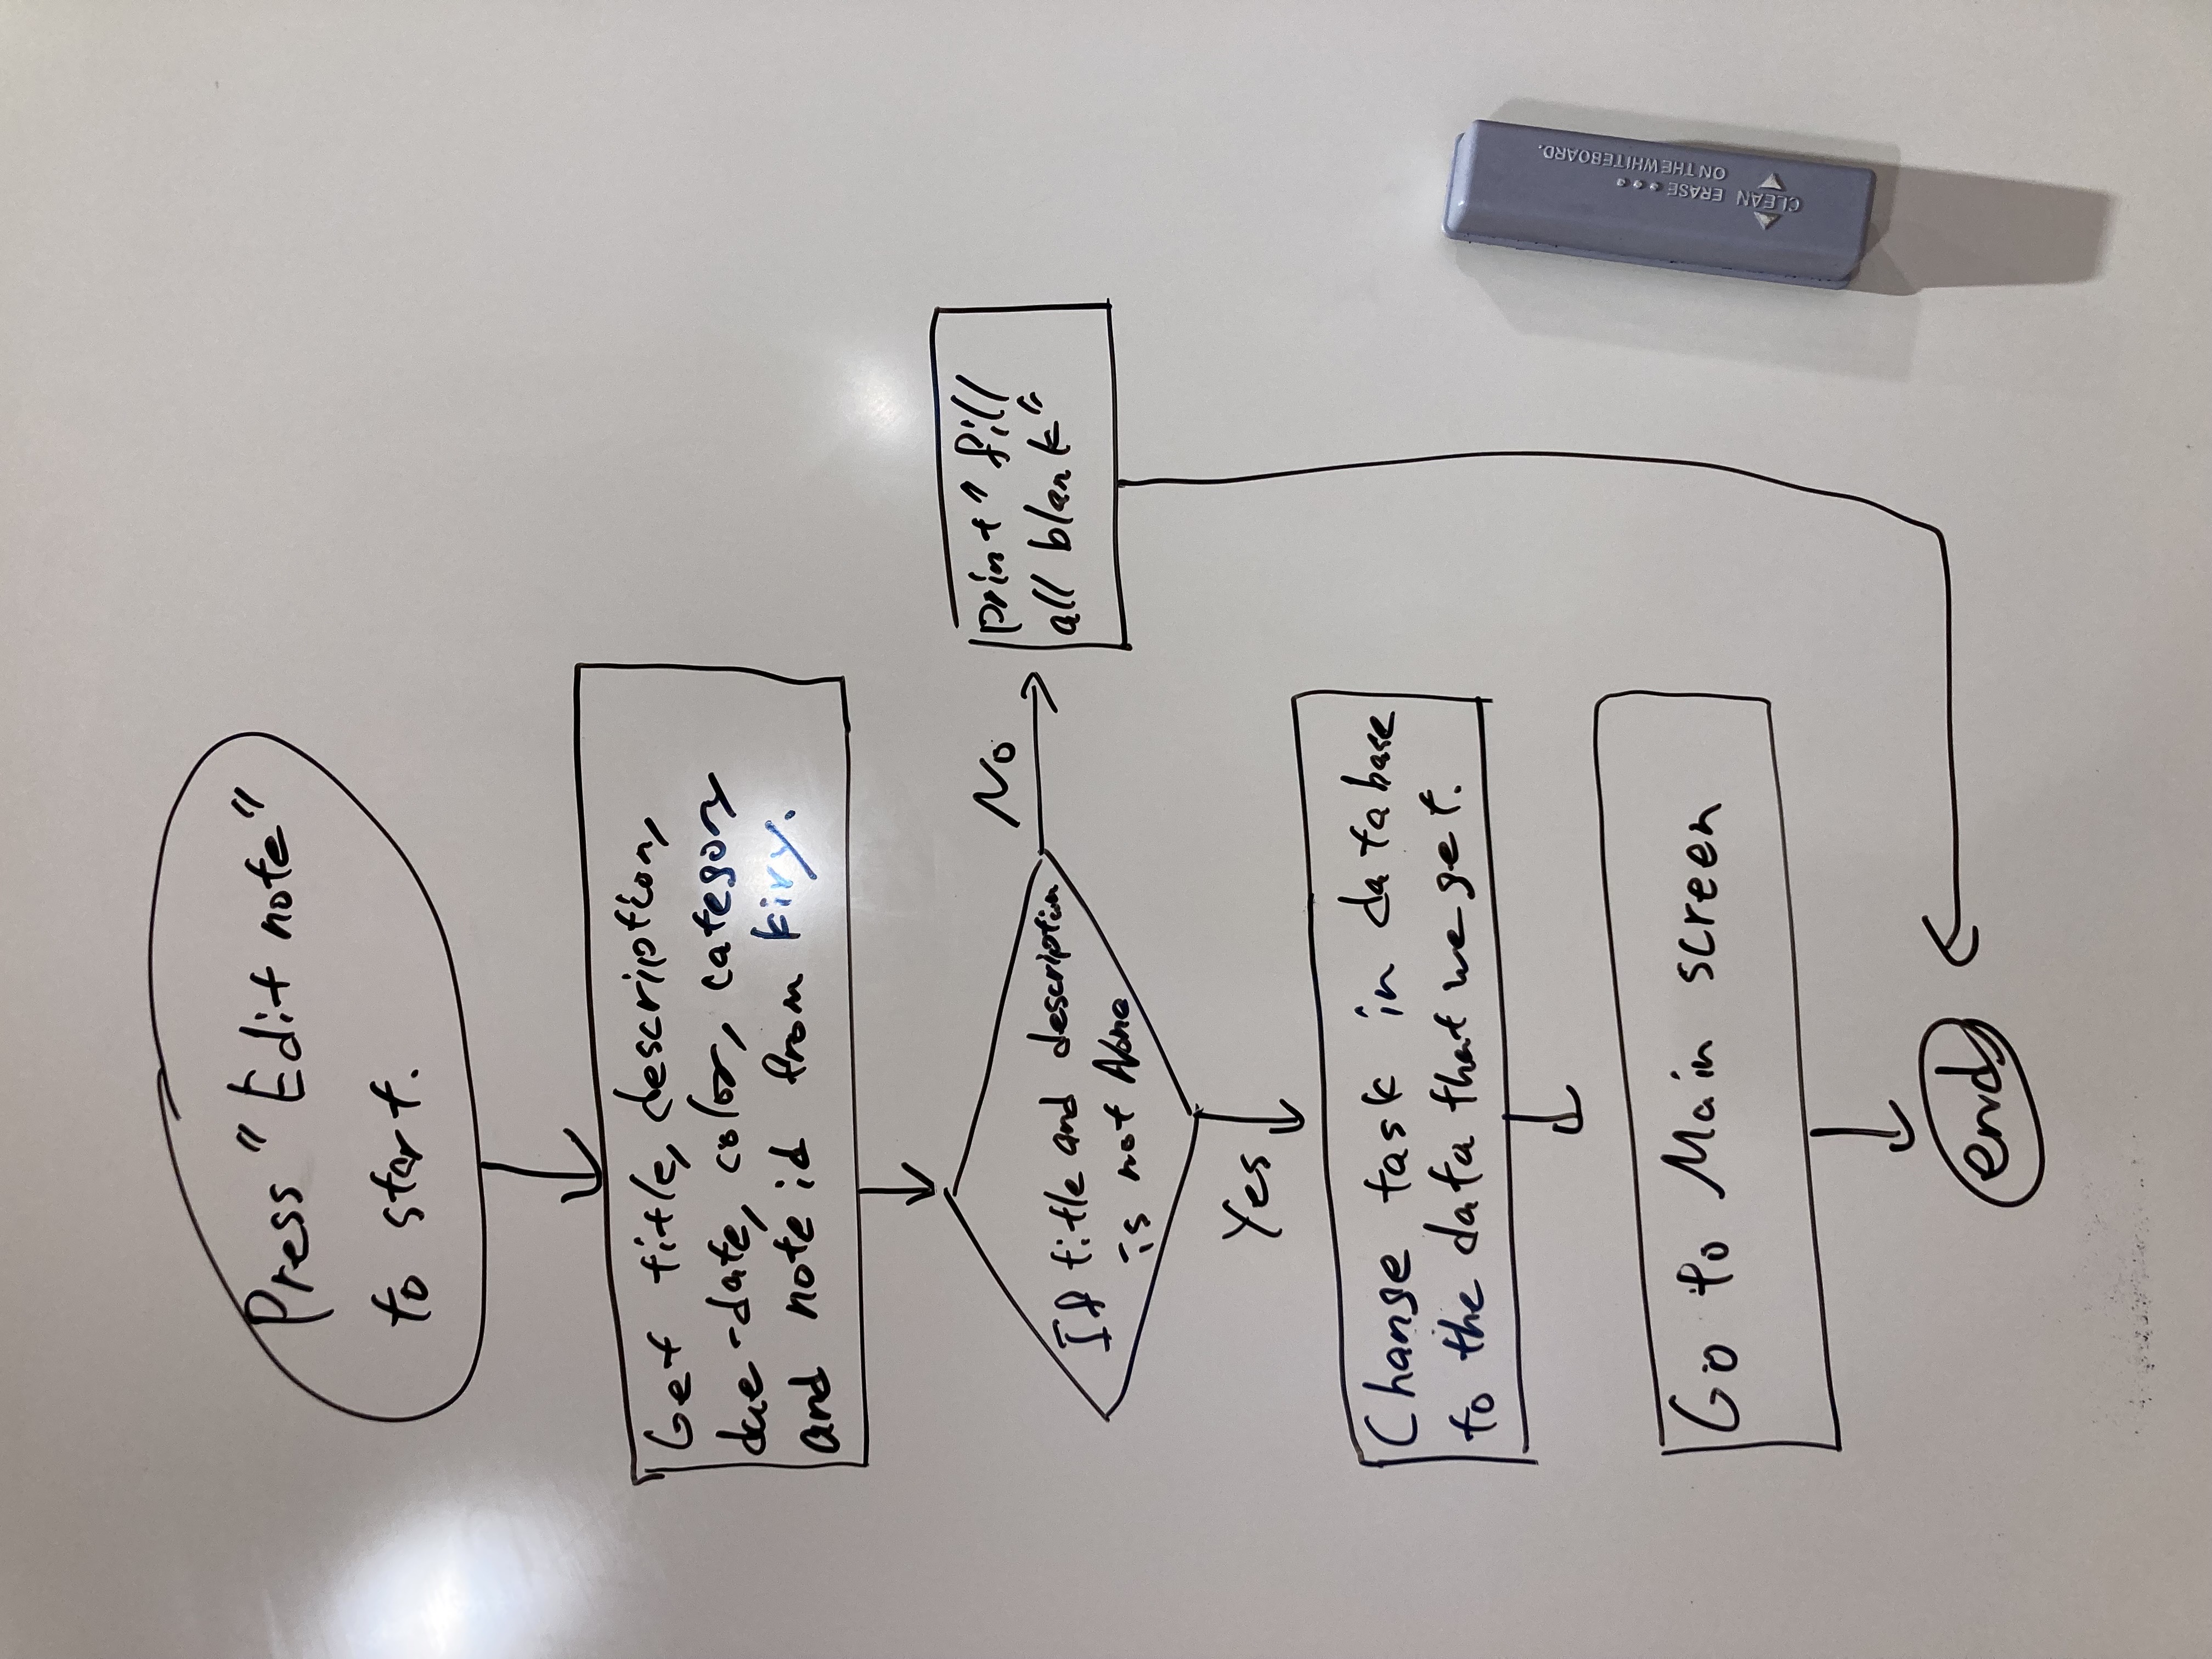 Press "Edit note"
to start.
Get title, description,
due-date, color, category
and note id from kivy.
If title and description
is not None
No
print "fill
all blank"
Yes
Change task in database
to the data that we get.
Go to Main screen
end
CLEAN ERASE...
ON THE WHITEBOARD.